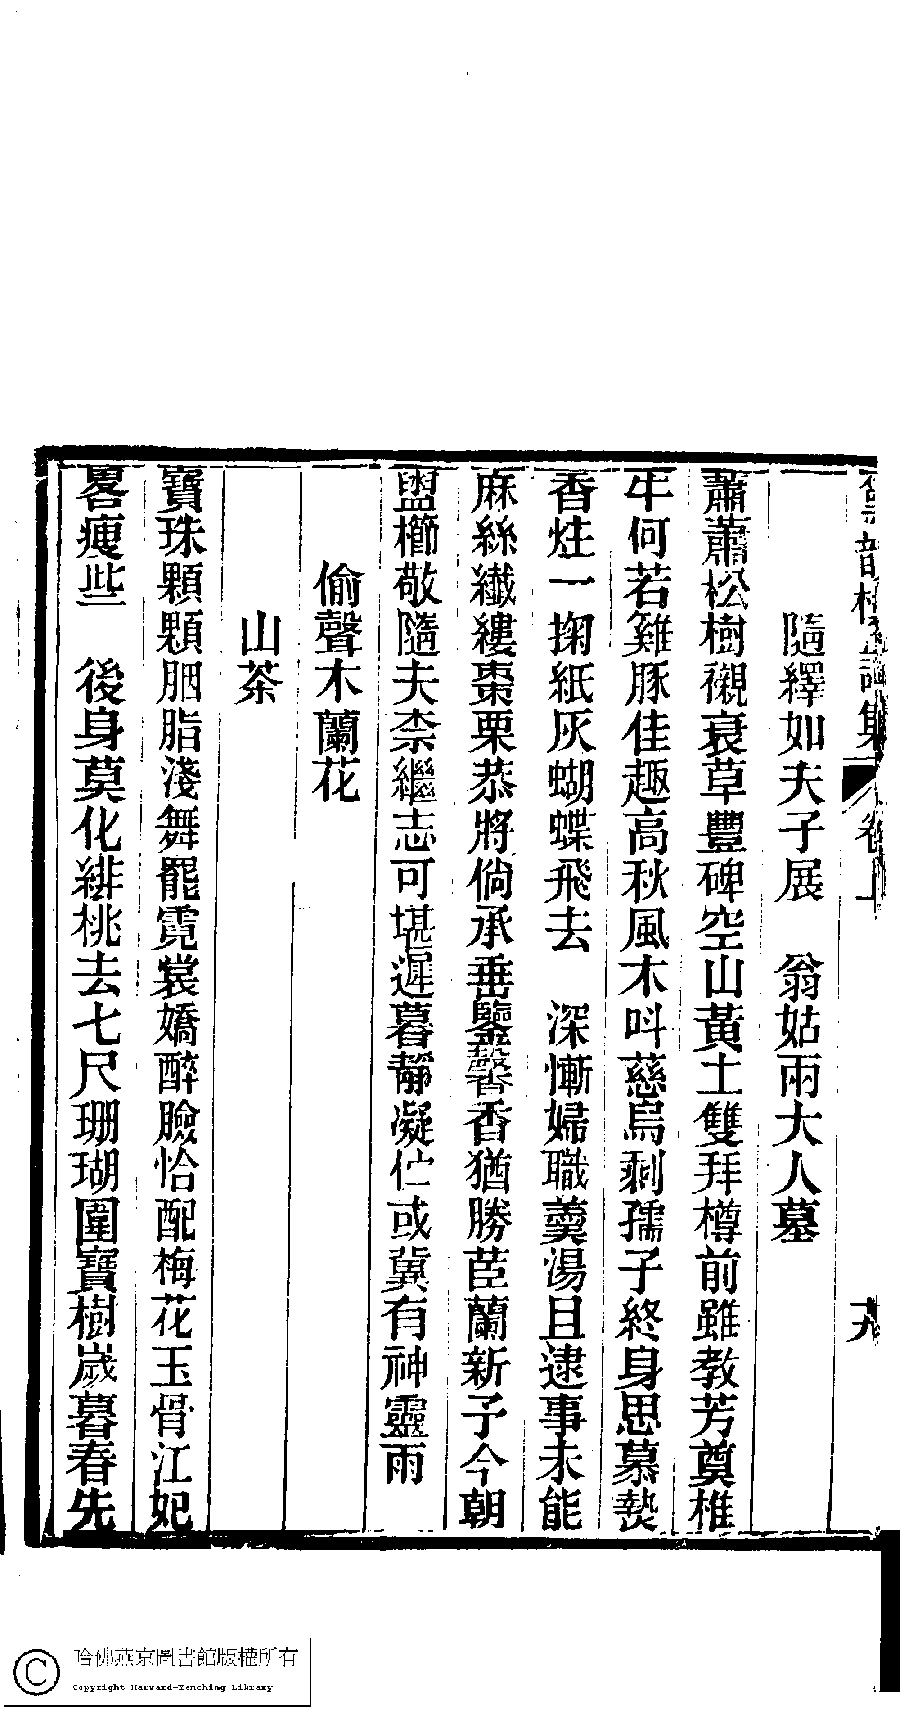 集 卷上
隨繹如夫子展　翁姑兩大人墓
蕭蕭松樹襯衰草豐碑空山黃土雙拜樽前雖教芳奠椎
牛何若雞豚佳趣高秋風木叫慈烏剩孺子終身思慕爇
香炷一掬紙灰蝴蝶飛去　深慚婦職羹湯且逮事未能
麻絲纖縷棗栗恭將倘承垂鑒馨香猶勝茝蘭新予今朝
盥櫛敬隨夫柰繼志可堪遲暮靜凝伫或冀有神靈雨
偷聲木蘭花
山茶
寶珠顆顆胭脂淺舞罷霓裳嬌醉臉恰配梅花玉骨江妃
畧瘦些　後身莫化緋桃去七尺珊瑚圍寶樹嵗暮春先
哈佛燕京圖書館版權所有
Copyright Harvard-Yenching Library